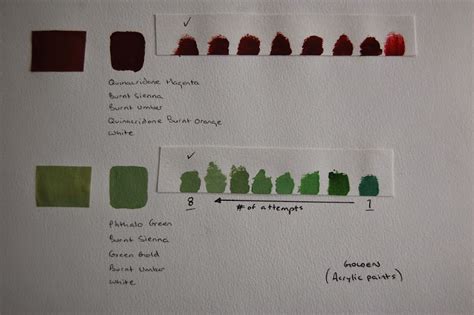 ✓
Quinacridone Magenta
Burnt Sienna
Burnt Umber
Quinacridone Burnt Orange
White
✓
8 # of attempts 1
Phthalo Green
Burnt Sienna
Green Gold
Burnt Umber
White
GOLDEN
(Acrylic paints)